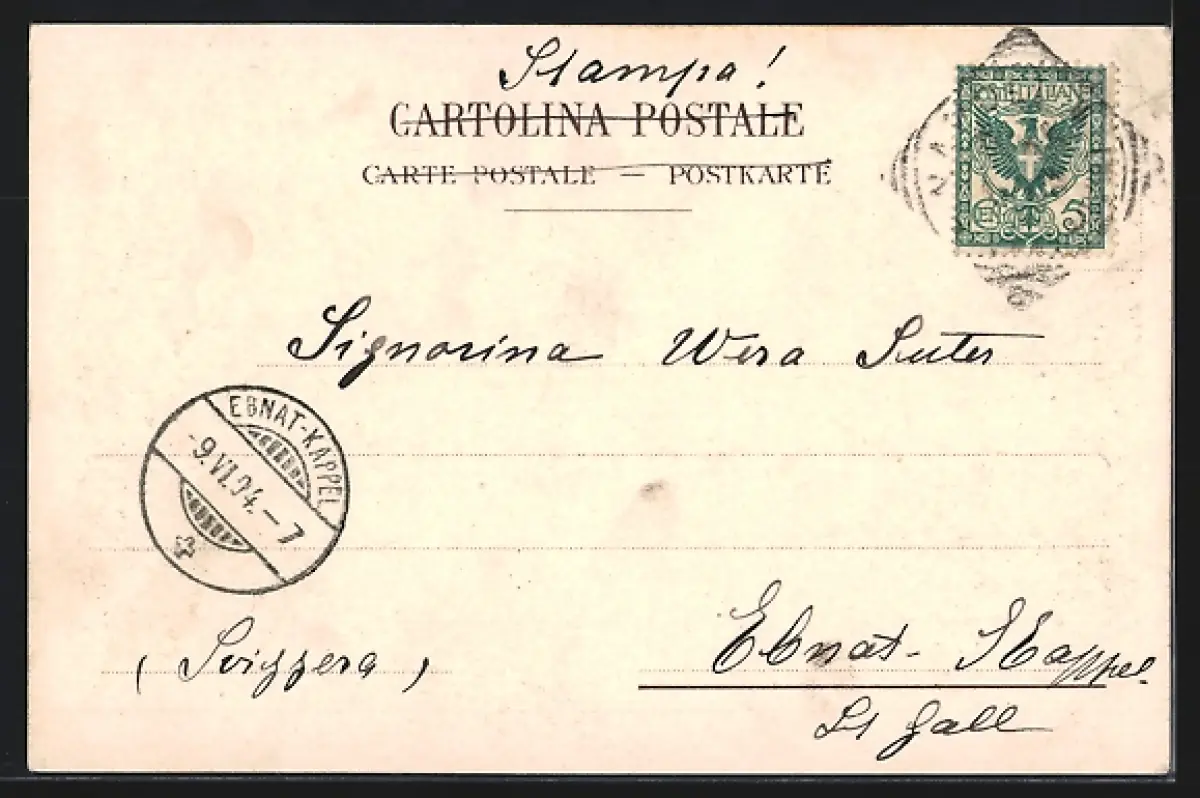 Stampa!
CARTOLINA POSTALE
CARTE POSTALE — POSTKARTE
POSTE ITALIANE
CEN 5
Signorina Wera Suter
EBNAT-KAPPEL
-9.VI.04.-7
(Svizzera)
Ebnat-Kappel.
St Gall